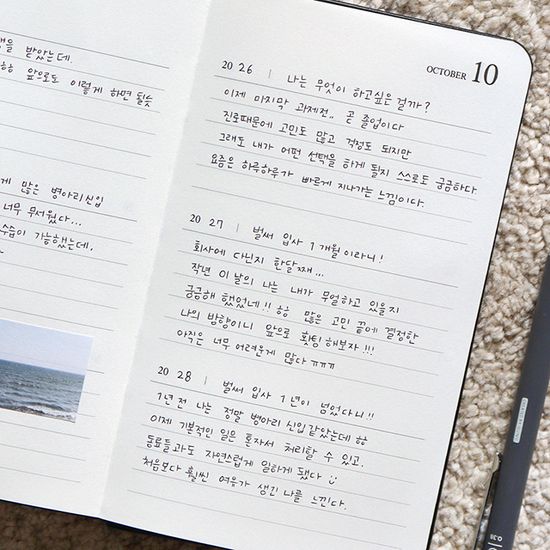 을 받았는데.
앞으로도 이렇게 하면 될듯
게 많은 병아리신입
너무 무서웠다...
수습이 가능했는데.
OCTOBER 10
20 26 | 나는 무엇이 하고싶은 걸까?
이제 마지막 과제전.. 곧 졸업이다
진로때문에 고민도 많고 걱정도 되지만
그래도 내가 어떤 선택을 하게 될지 스스로도 궁금하다
요즘은 하루하루가 빠르게 지나가는 느낌이다.
20 27 | 벌써 입사 1개월이라니!
회사에 다닌지 한달째...
작년 이 날의 나는 내가 무얼하고 있을지
궁금해 했었네!! ㅎㅎ 많은 고민 끝에 결정한
나의 방향이니 앞으로 화팅 해보자!!!
아직은 너무 어려운게 많다 ㅠㅠㅠ
20 28 | 벌써 입사 1년이 넘었다니!!
1년 전 나는 정말 병아리 신입같았는데 ㅎㅎ
이제 기본적인 일은 혼자서 처리할 수 있고.
동료들과도 자연스럽게 일하게 됐다
처음보다 훨씬 여유가 생긴 나를 느낀다.